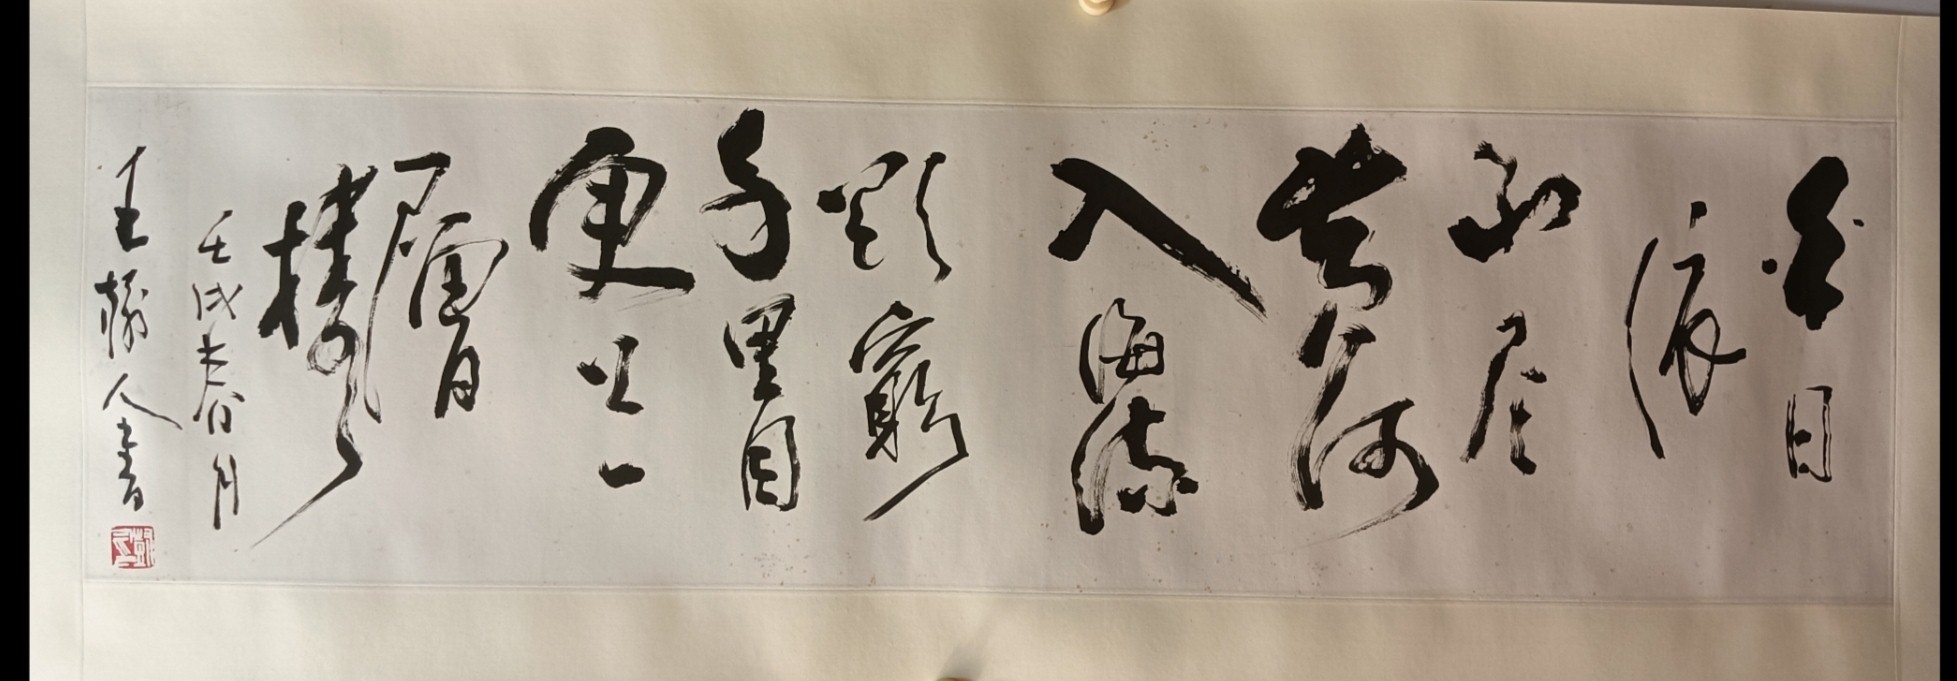 白日
依
山盡
黄河
入海流
欲窮
千里目
更上一
層
樓
壬戌春月
王樹人書